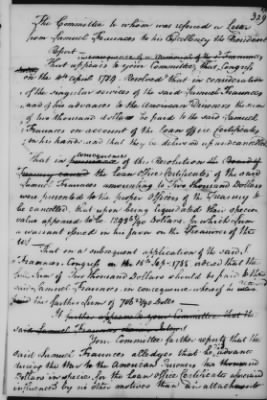 329
The Committee to whom was referred a Letter
from Samuel Fraunces to his Excellency the President
Report
That it appears to your Committee, that Congress
on the 4th April 1785. Resolved that in consideration
of the singular services of the said Samuel Fraunces
and of his advances to the American Prisoners the sum
of two thousand dollars be paid to the said Samuel
Fraunces on account of the Loan Office Certificates
in his hands and that they be delivered up and cancelled
That in consequence of this Resolution the Board of
Treasury caused the Loan Office Certificates of the said
Samuel Fraunces amounting to Two thousand Dollars
were presented to the proper Officers of the Treasury to
be cancelled that upon being liquidated their specie
value appeared to be Dollars for which sum
a warrant issued in his favor on the Treasurer of the
That on a subsequent application of the said
Fraunces, Congress on the Sept. 1785 ordered that the
full Sum of Two thousand Dollars should be paid to the
said Samuel Fraunces, in consequence whereof he
paid the further Sum of Dollars
It further appears to your Committee that the
said Samuel Fraunces
Your Committee further report that the
said Samuel Fraunces alledges that he advance
during the War to the American Prisoners two thousand
Dollars in specie, for the Loan Office Certificate aforesaid
influenced by no other motives than his attachment